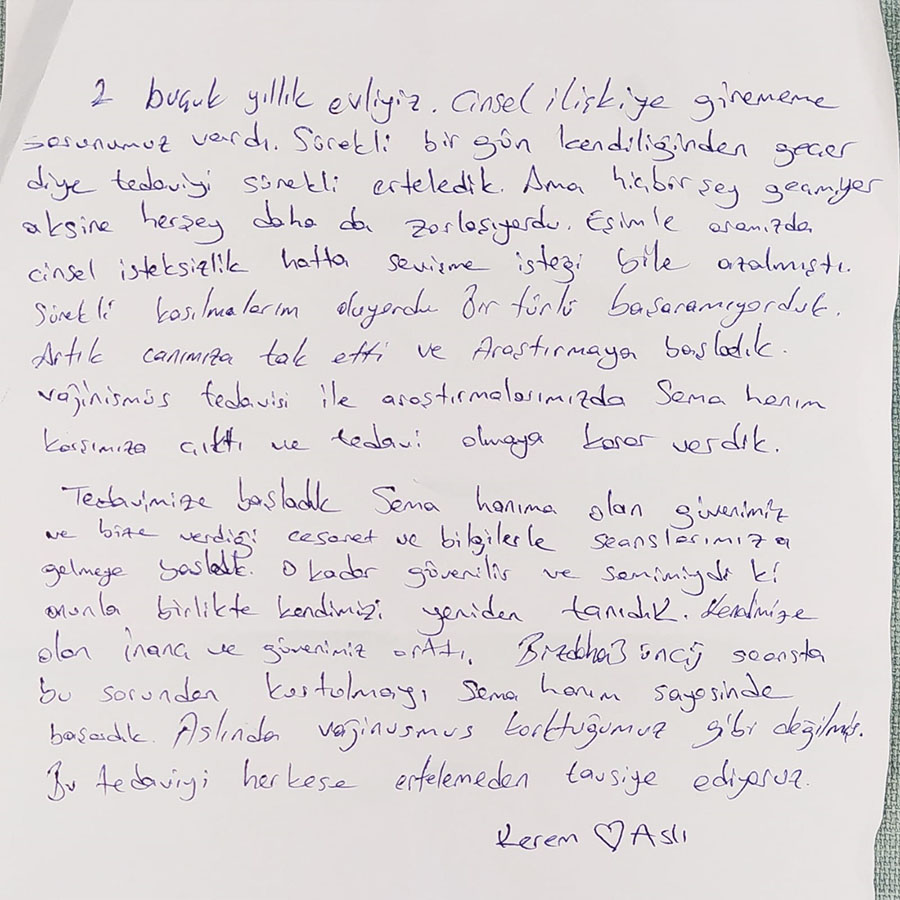 2 buçuk yıllık evliyiz. Cinsel ilişkiye girememe
sorunumuz vardı. Sürekli bir gün kendiliğinden geçer
diye tedaviyi sürekli erteledik. Ama hiçbir şey geçmiyor
aksine herşey daha da zorlaşıyordu. Eşimle aramızda
cinsel isteksizlik hatta sevişme isteği bile azalmıştı.
Sürekli kasılmalarım oluyordu Bir türlü başaramıyorduk.
Artık canımıza tak etti ve Araştırmaya başladık.
vajinismüs tedavisi ile araştırmalarımızda Sema hanım
karşımıza çıktı ve tedavi olmaya karar verdik.
Tedavimize başladık Sema hanıma olan güvenimiz
ve bize verdiği cesaret ve bilgilerle seanslarımıza
gelmeye başladık. O kadar güvenilir ve samimiydi ki
onunla birlikte kendimizi yeniden tanıdık. Kendimize
olan inanç ve güvenimiz arttı. Biz daha 3 üncü seansta
bu sorundan kurtulmayı Sema hanım sayesinde
başardık. Aslında vajinusmus korktuğumuz gibi değilmiş.
Bu tedaviyi herkese ertelemeden tavsiye ediyoruz.
Kerem ♡ Aslı